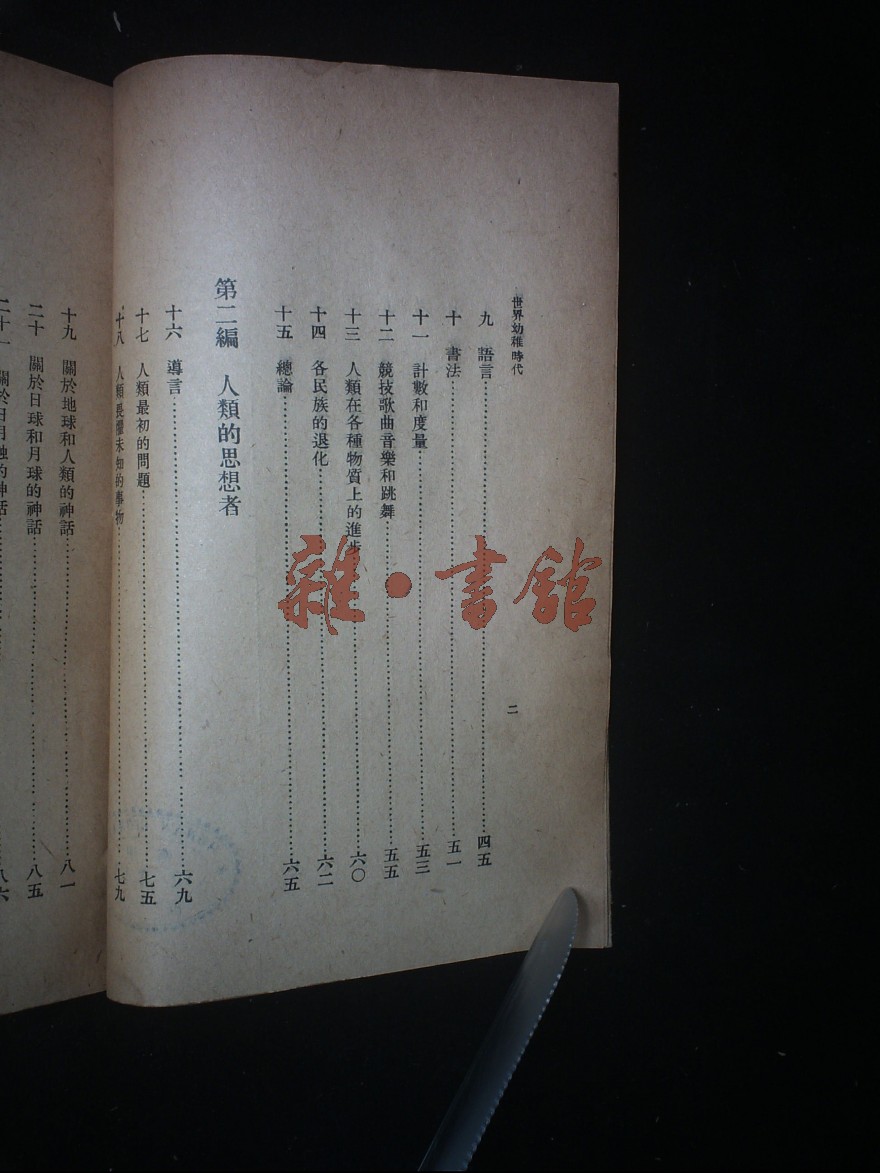 世界幼稚時代
二
九 語言 四五
十 書法 五一
十一 計數和度量 五三
十二 競技歌曲音樂和跳舞 五五
十三 人類在各種物質上的進步 六〇
十四 各民族的退化 六二
十五 總論 六五
第二編 人類的思想者
十六 導言 六九
十七 人類最初的問題 七五
十八 人類畏懼未知的事物 七九
十九 關於地球和人類的神話 八一
二十 關於日球和月球的神話 八五
二十一 關於日月蝕的神話 八六
雜·書館